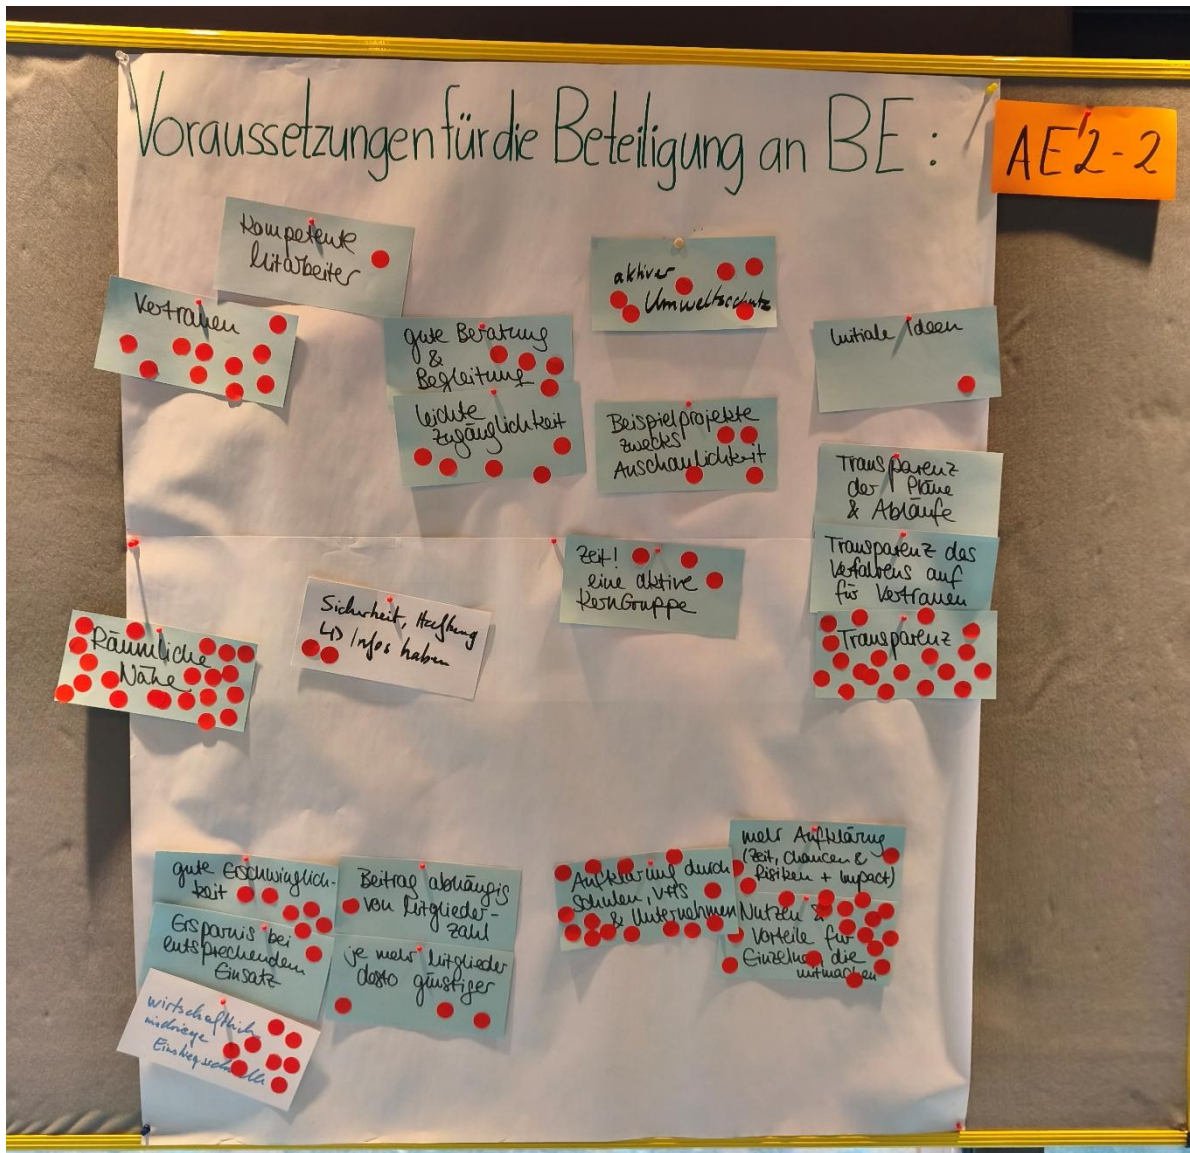 Voraussetzungen für die Beteiligung an BE:
AE 2-2
Kompetente
Mitarbeiter
Vertrauen
gute Beratung
&
Begleitung
leichte
Zugänglichkeit
aktiver
Umweltschutz
Beispielprojekte
zwecks
Anschaulichkeit
Initiale Ideen
Transparenz
der Pläne
& Abläufe
Transparenz des
Verfahrens auf
für Vertrauen
Transparenz
Zeit!
eine aktive
KernGruppe
Sicherheit, Haftung
↳ Infos haben
Räumliche
Nähe
gute Erschwinglich-
keit
Ersparnis bei
entsprechendem
Einsatz
wirtschaftlich
niedrige
Einstiegsschwelle
Beitrag abhängig
von Mitglieder-
zahl
je mehr Mitglieder
desto günstiger
Aufklärung durch
Schulen, VHS
& Unternehmen
mehr Aufklärung
(Zeit, Chancen &
Risiken + Impact)
Nutzen &
Vorteile für
Einzelne, die
mitmachen